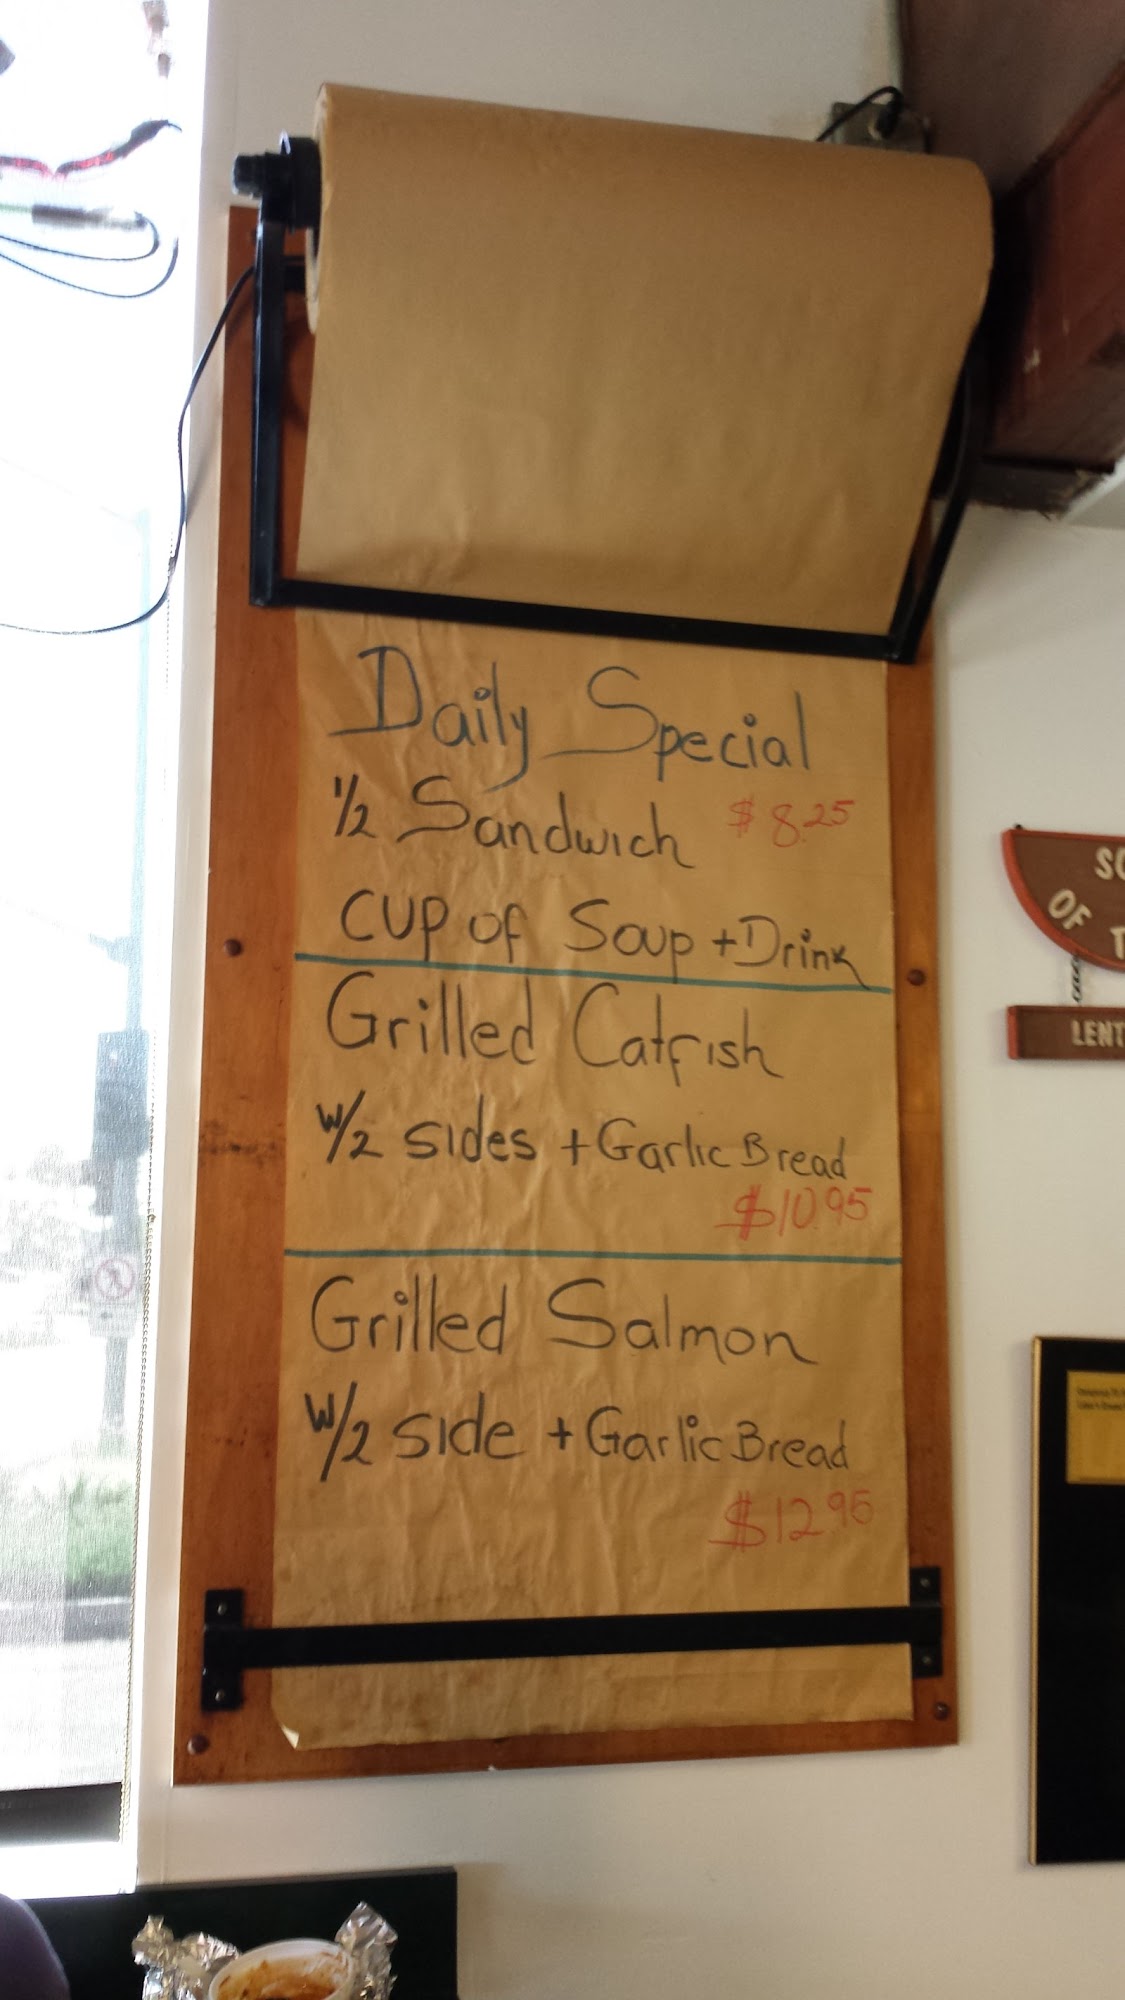 Daily Special
1/2 Sandwich $8.25
cup of Soup + Drink
Grilled Catfish
w/2 sides + Garlic Bread
$10.95
Grilled Salmon
w/2 side + Garlic Bread
$12.95
OF
LENT